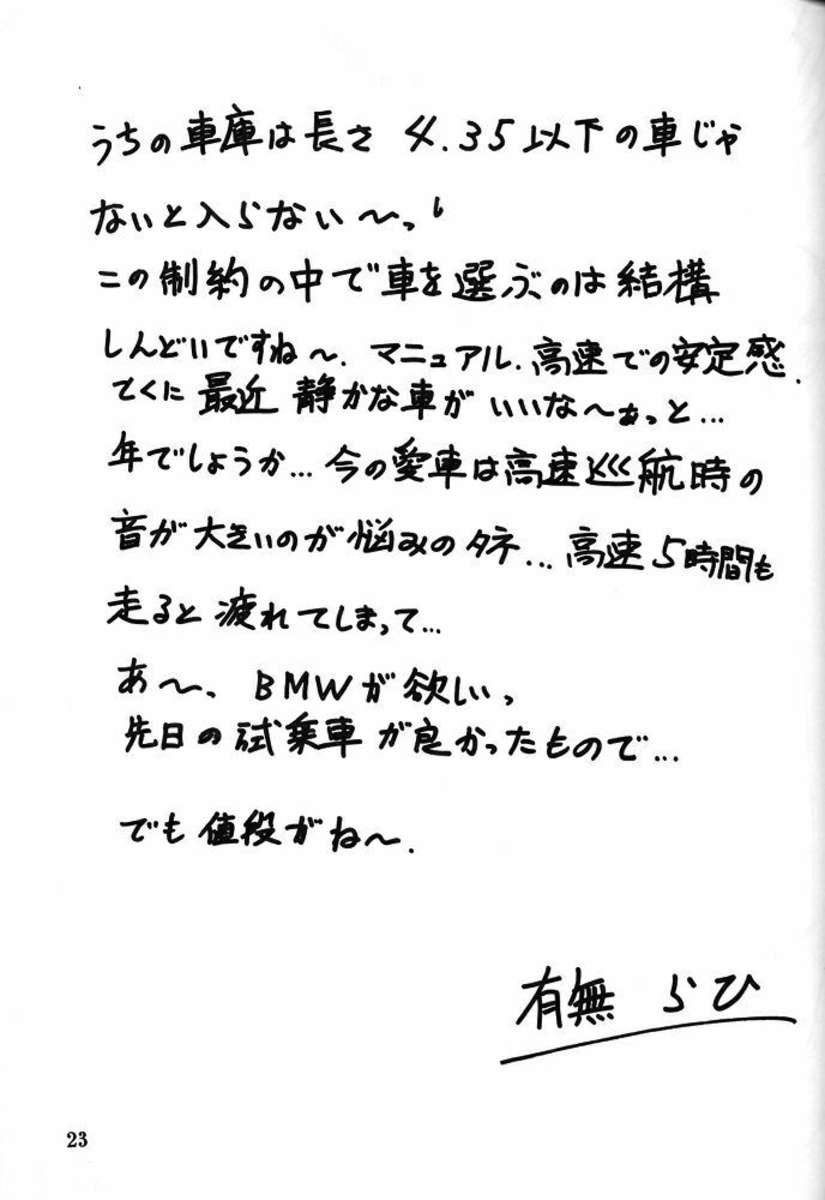 うちの車庫は長さ 4.35以下の車じゃ
ないと入らない〜っ!
この制約の中で車を選ぶのは結構
しんどいですね〜. マニュアル.高速での安定感.
てくに 最近 静かな車が いいな〜ぁっと...
年でしょうか... 今の愛車は高速巡航時の
音が大きいのが悩みのタネ... 高速5時間も
走ると疲れてしまって...
あ〜、BMWが欲しいっ
先日の試乗車が良かったもので...
でも値段がね〜.
有無 らひ
23